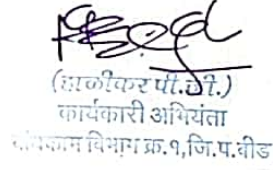 (हाळीकर पी.जी.)
कार्यकारी अभियंता
बांधकाम विभाग क्र.१,जि.प.बीड